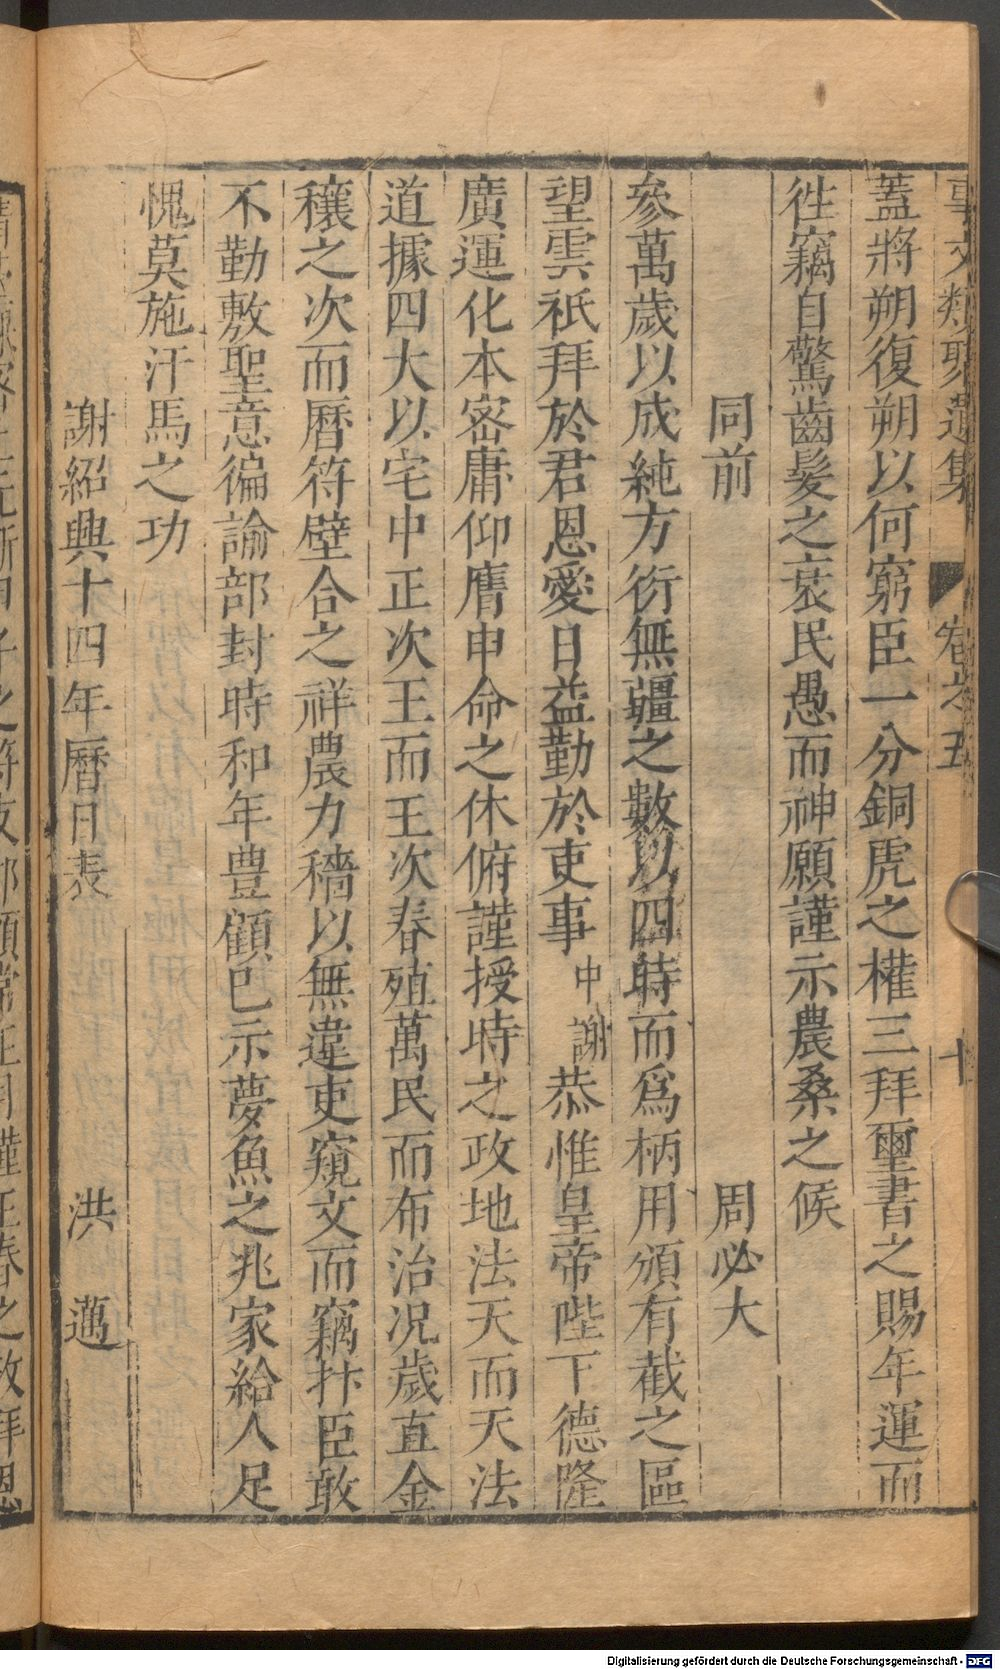 事文類聚遺集 卷之五 十
蓋將朔復朔以何窮臣一分銅虎之權三拜璽書之賜年運而
徃竊自驚齒髮之哀民愚而神願謹示農桑之候
同前 周必大
參萬歲以成純方衍無疆之數以四時而爲柄用頒有截之區
望雲祇拜於君恩愛日益勤於吏事中謝恭惟皇帝陛下德隆
廣運化本宻庸仰膺申命之休俯謹授時之政地法天而天法
道據四大以宅中正次王而王次春殖萬民而布治况歲直金
穰之次而曆符璧合之祥農力穡以無違吏窺文而竊抃臣敢
不勤敷聖意徧諭部封時和年豊顧已示夢魚之兆家給人足
愧莫施汗馬之功
謝紹興十四年曆日表 洪邁
Digitalisierung gefördert durch die Deutsche Forschungsgemeinschaft - DFG